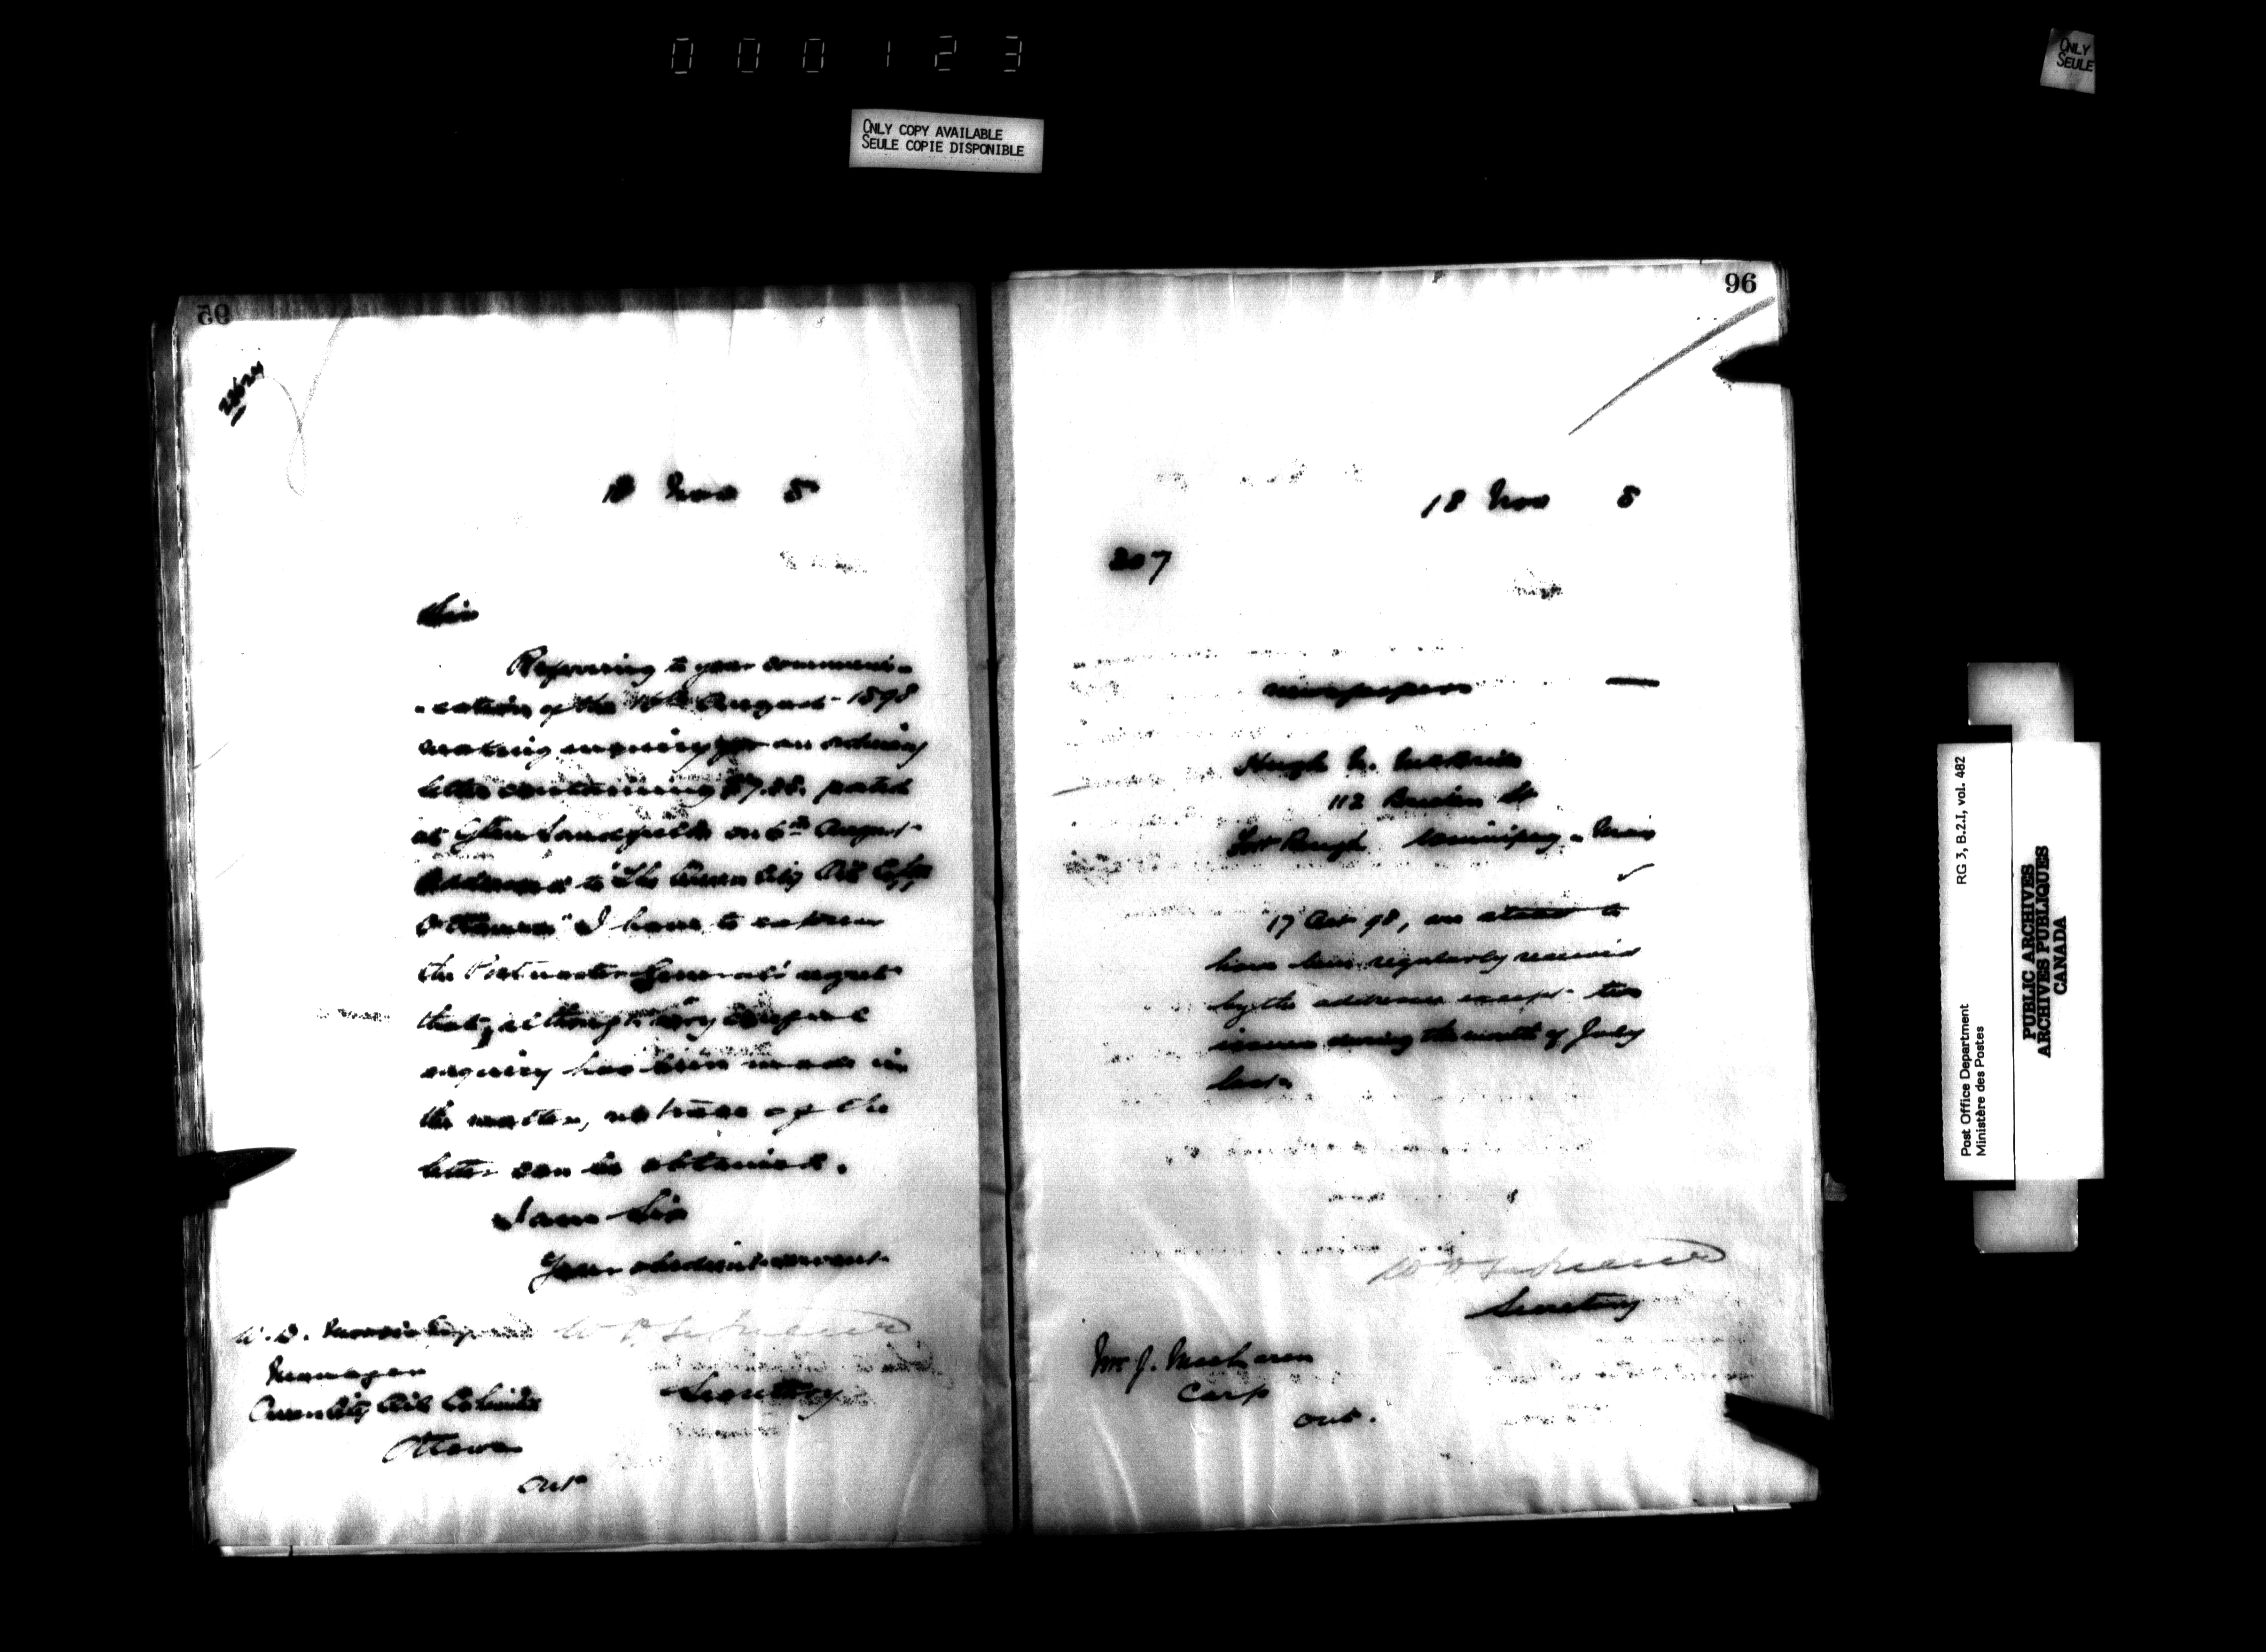 000123
ONLY COPY AVAILABLE
SEULE COPIE DISPONIBLE
ONLY
SEULE
95
18 Nov 8
Sir
Referring to your communi-
-cation of the August 1898
making enquiry for an ordinary
letter containing posted
at Glen on 6th August
Addressed to "The Queen City Oil Co
Ottawa" I have to express
the Postmaster General's regret
that, although very careful
enquiry has been made in
the matter, no trace of the
letter can be obtained.
I am Sir
Your obedient servant
W. D.
Manager
Queen City Oil Co Limited
Ottawa
Ont
Secretary
96
18 Nov 8
207
newspapers —
Hugh
112 St
Fort Rouge Winnipeg - Man
17 Oct 98, are stated to
have been regularly received
by the addressee except two
issues during the month of July
last.
Secretary
Mr J. MacLaren
Carp
Ont.
Post Office Department
Ministère des Postes
RG 3, B.2.I, vol. 482
PUBLIC ARCHIVES
ARCHIVES PUBLIQUES
CANADA